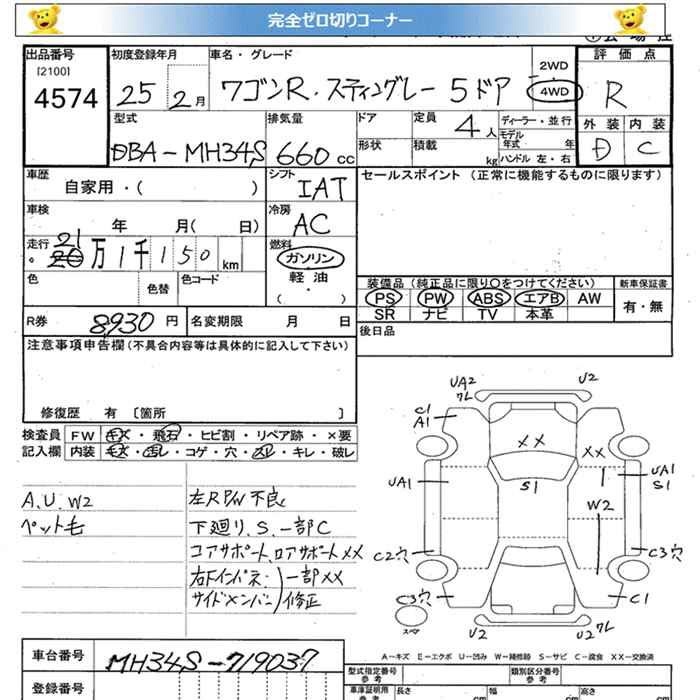 完全ゼロ切りコーナー
出品番号 初度登録年月 車名・グレード 2WD 評価点
[2100]
4574 25 2月 ワゴンR.スティングレー 5ドア 4WD R
型式 排気量 ドア 定員 ディーラー・並行 外装 内装
DBA-MH34S 660cc 4人 モデル年式 年 D C
形状 積載 kg ハンドル 左・右
車歴 シフト セールスポイント (正常に機能するものに限ります)
自家用・( ) IAT
車検 冷房
年 月( 日) AC
走行 燃料
21万1千150km ガソリン
色 色替 色コード 軽油
・( )
装備品 (純正品に限り○をつけてください) 新車保証書
PS PW ABS エアB AW 有・無
SR ナビ TV 本革
R券 8,930円 名変期限 月 日 後日品
注意事項申告欄(不具合内容等は具体的に記入して下さい)
修復歴 有 [箇所 ]
検査員 FW キズ・飛石・ヒビ割・リペア跡・×要
記入欄 内装 キズ・汚レ・コゲ・穴・スレ・キレ・破レ
A.U.W2 左RP/W不良
ペット毛 下廻り、S.一部C
コアサポート、ロアサポートXX
右Fインパネ 一部XX
サイドメンバー 修正
UA2 U2
フレ
C1
A1
XX
XX
UA1 S1 UA1
S1
W2
C2穴 C3穴
C3穴 C1
スペア U2 U2フレ
A－キズ E－エクボ U－凹み W－補修跡 S－サビ C－腐食 XX－交換済
車台番号 MH34S-719037
型式指定番号 参考 類別区分番号 参考
登録番号 車庫証明用 参考 長さ cm 幅 cm 高さ cm